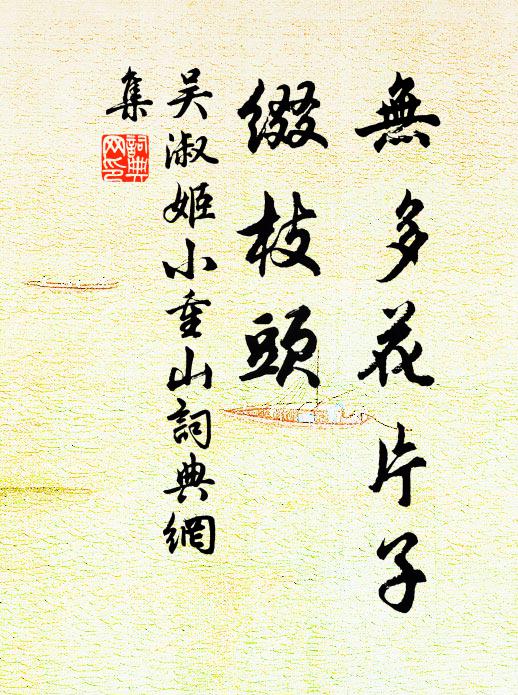 無多花片子
綴枝頭
吴淑姬小重山詞典網
集
詞典
网印